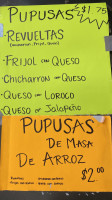 PUPUSAS $1.75
REVUELTAS
• FRIJOL CON QUESO
• CHICHARRON CON QUESO
• QUESO CON LOROCO
QUESO CON JALAPEÑO
PUPUSAS
DE MASA
DE ARROZ
$2.00